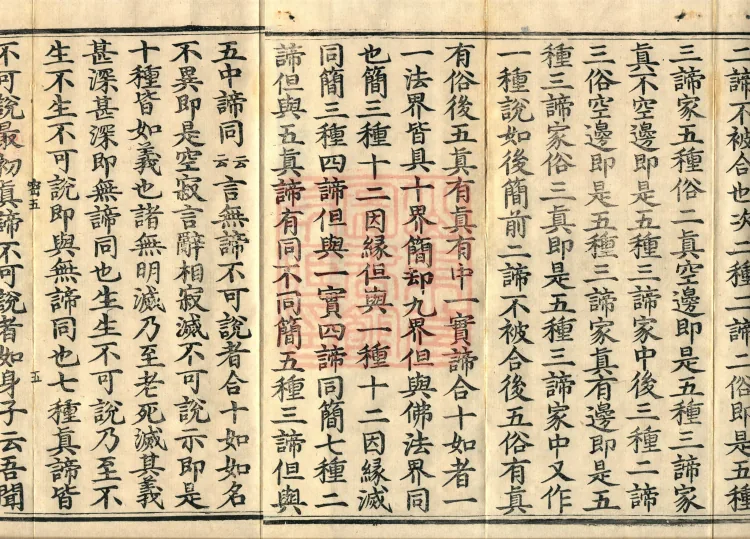 二諦不被合也次二種二諦二俗即是五種
三諦家五種俗二真空邊即是五種三諦家
真不空邊即是五種三諦家中後三種二諦
三俗空邊即是五種三諦家真有邊即是五
種三諦家俗三真即是五種三諦家中又作
一種說如後簡前二諦不被合後五俗有真
有俗後五真有真有中一實諦合十如者一
一法界皆具十界簡却九界但與佛法界同
也簡三種十二因緣但與一種十二因緣滅
同簡三種四諦但與一實四諦同簡七種二
諦但與五真諦有同不同簡五種三諦但與
五中諦同云云言無諦不可說者合十如如名
不異即是空寂言辭相寂滅不可說示即是
十種皆如義也諸無明滅乃至老死滅其義
甚深甚深即無諦同也生生不可說乃至不
生不生不可說即與無諦同也七種真諦皆
不可說最初真諦不可說者如身子云吾聞